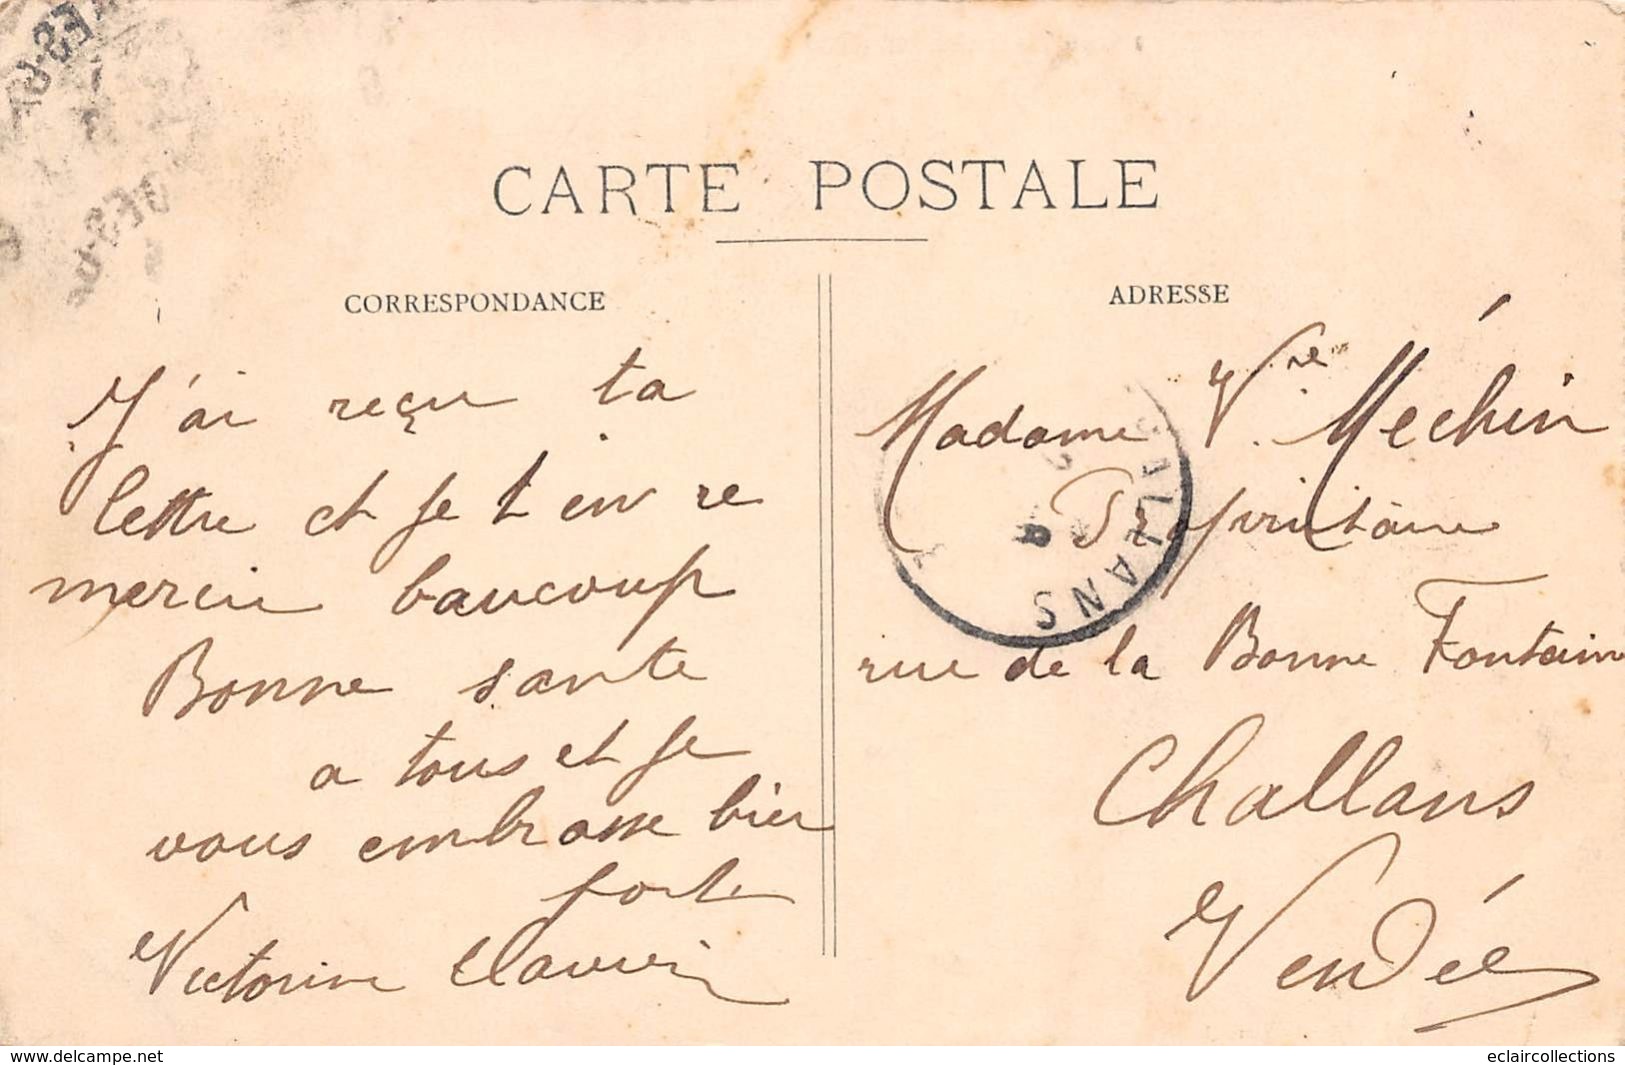 CARTE POSTALE
CORRESPONDANCE
J'ai reçu ta
lettre et je t en re
mercie baucoup
Bonne sante
a tous et je
vous embrasse bien
fort
Victorine
ADRESSE
Madame Vve Méchin
Propriétaire
rue de la Bonne Fontaine
Challans
Vendée
CHALLANS
www.delcampe.net
eclaircollections